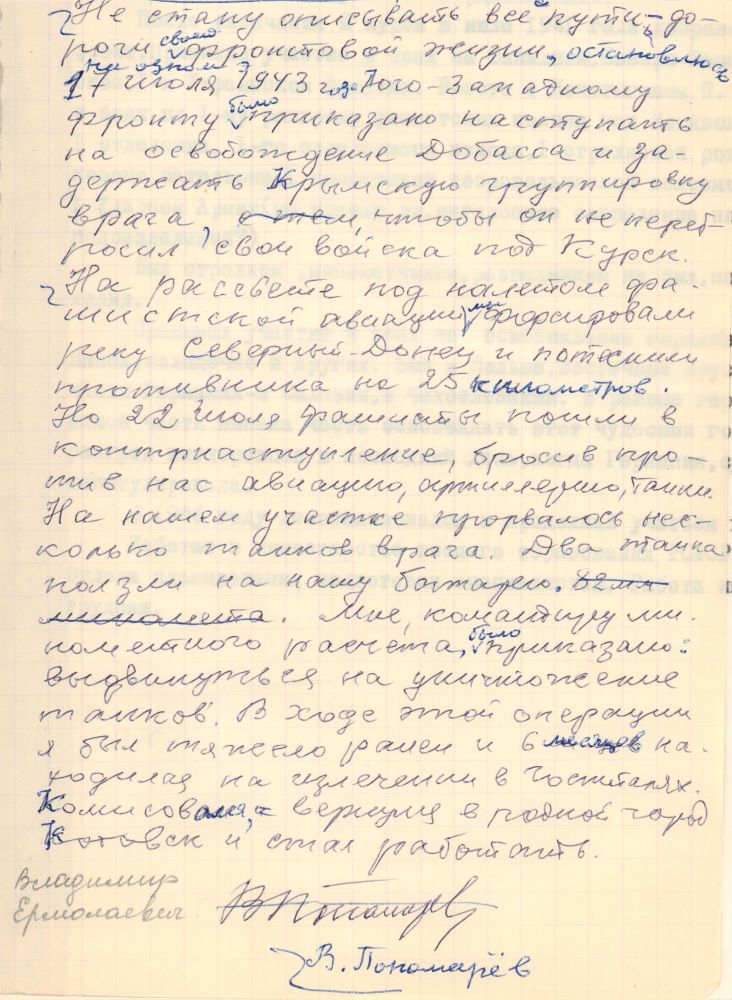 Не стану описывать все пути-до-
роги своей фронтовой жизни, остановлюсь
на одном
17 июля 1943 года Юго-Западному
фронту было приказано наступать
на освобождение Добасса и за-
держать Крымскую группировку
врага с тем, чтобы он не переб-
росил свои войска под Курск.
На рассвете под налетом фа-
шистской авиации мы форсировали
реку Северный-Донец и потеснили
противника на 25 километров.
Но 22 июля фашисты пошли в
контрнаступление, бросив про-
тив нас авиацию, артиллерию, танки.
На нашем участке прорвалось нес-
колько танков врага. Два танка
ползли на нашу батарею. 82 мм
миномета. Мне, командиру ми-
нометного расчета, было приказано:
выдвинуться на уничтожение
танков. В ходе этой операции
я был тяжело ранен и 6 месяцев на-
ходился на излечении в госпиталях.
Комисовался, вернулся в родной город
Котовск и стал работать.
Владимир
Ермолаевич
В. Пономарёв